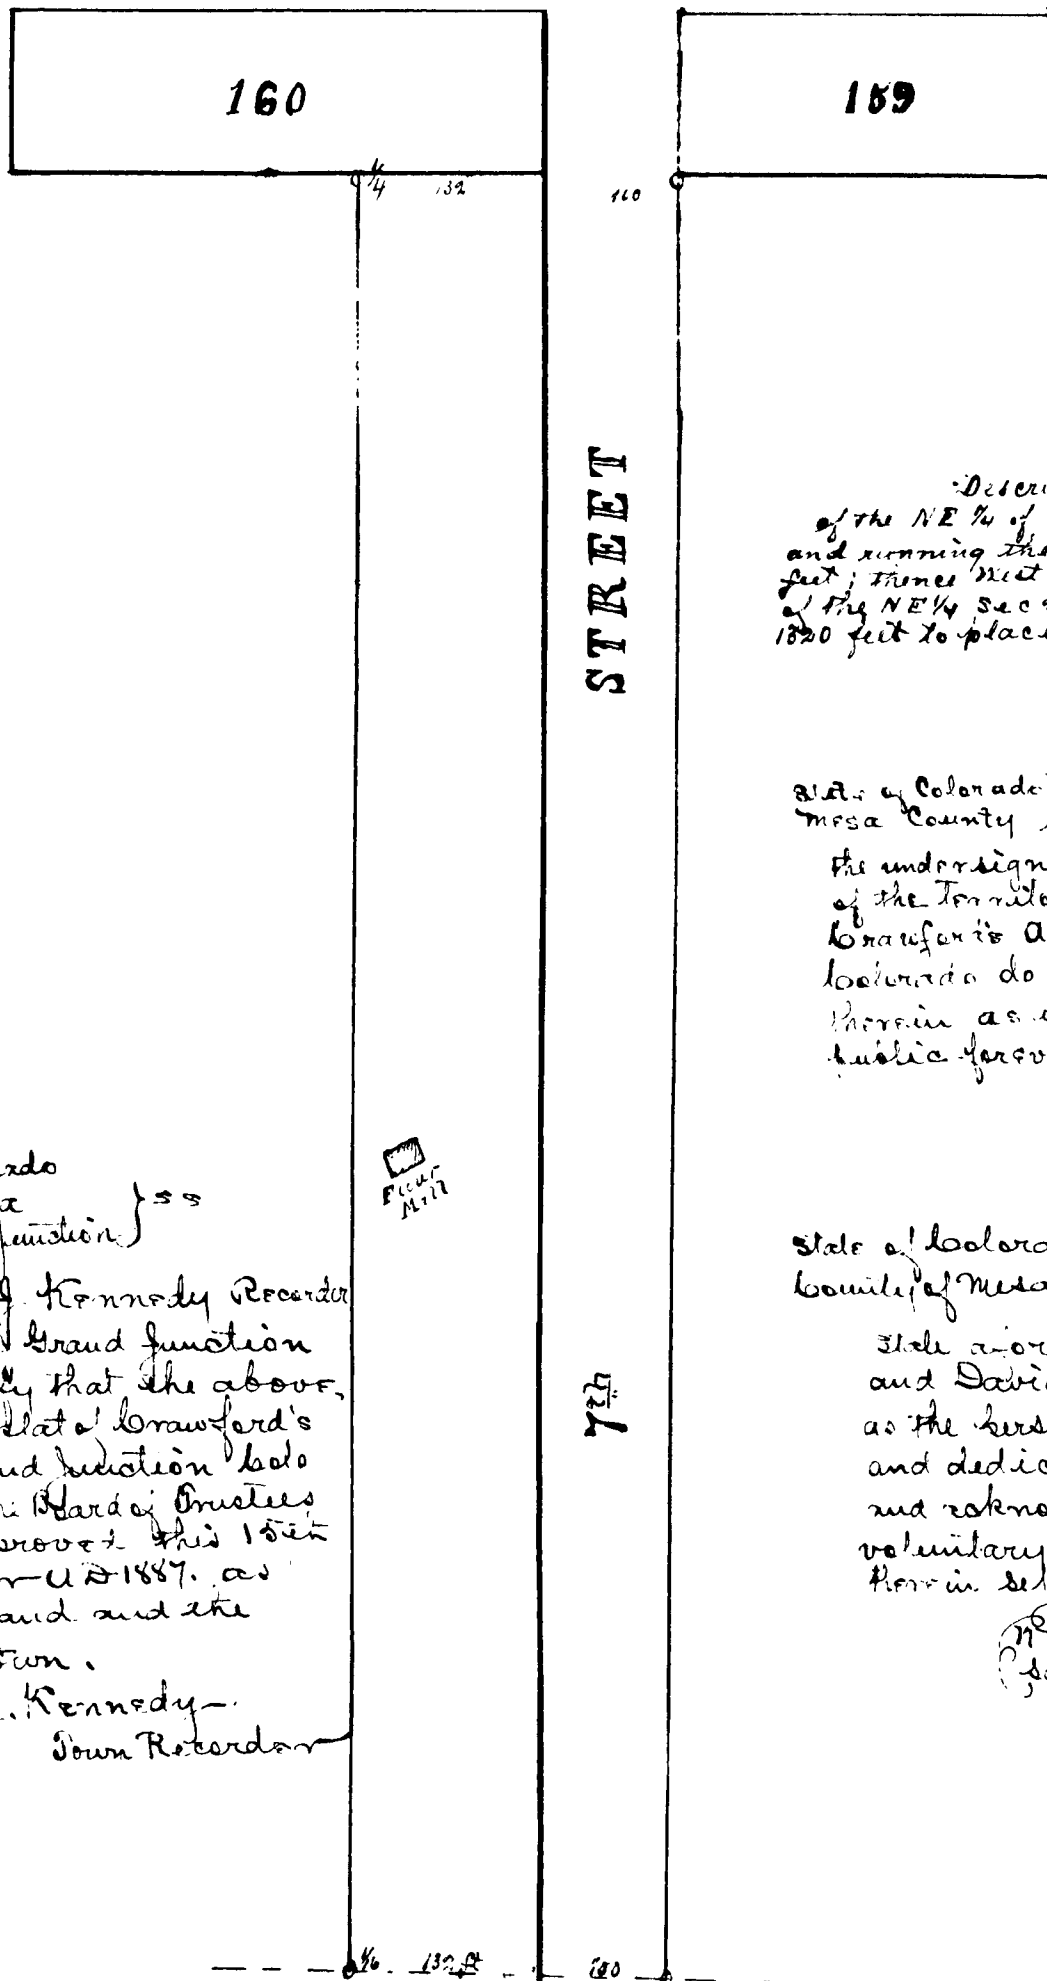 160
159
1/4
132
160
STREET
Descri
of the NE 1/4 of
and running the
feet; thence West
of the NE 1/4 Sec
1320 feet to place
State of Colorado
Mesa County
the undersign
of the Territo
Crawford's A
Colorado do
therein as
public forev
Flour
Mill
rado
a
Junction } ss
J. Kennedy Recorder
Grand Junction
fy that the above,
plat of Crawford's
nd Junction Colo
Board of Trustees
proved this 15th
AD 1887. as
hand and the
Town.
. Kennedy
Town Recorder
7th
State of Colora
County of Mesa
State afor
and Davi
as the pers
and dedic
and ackno
voluntary
therein set
1/16
132 ft